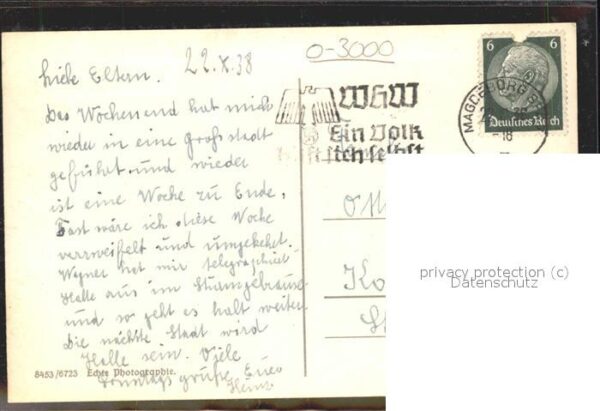 22.X.38
0-3000
Liebe Eltern.
Das Wochenend hat mich
wieder in eine Großstadt
geführt und wieder
ist eine Woche zu Ende.
Fast wäre ich diese Woche
verzweifelt und umgekehrt.
Wagner hat mir telegraphiert
Halle aus im Sturmgebrause
und so geht es halt weiter.
Die nächste Stadt wird
Halle sein. Viele
Sonntagsgrüße Euer
Heinz
8453/6723 Echte Photographie.
WHW
Ein Volk
hilft sich selbst
MAGDEBURG
18
6 6
Deutsches Reich
Ott
Ko
St
privacy protection (c)
Datenschutz